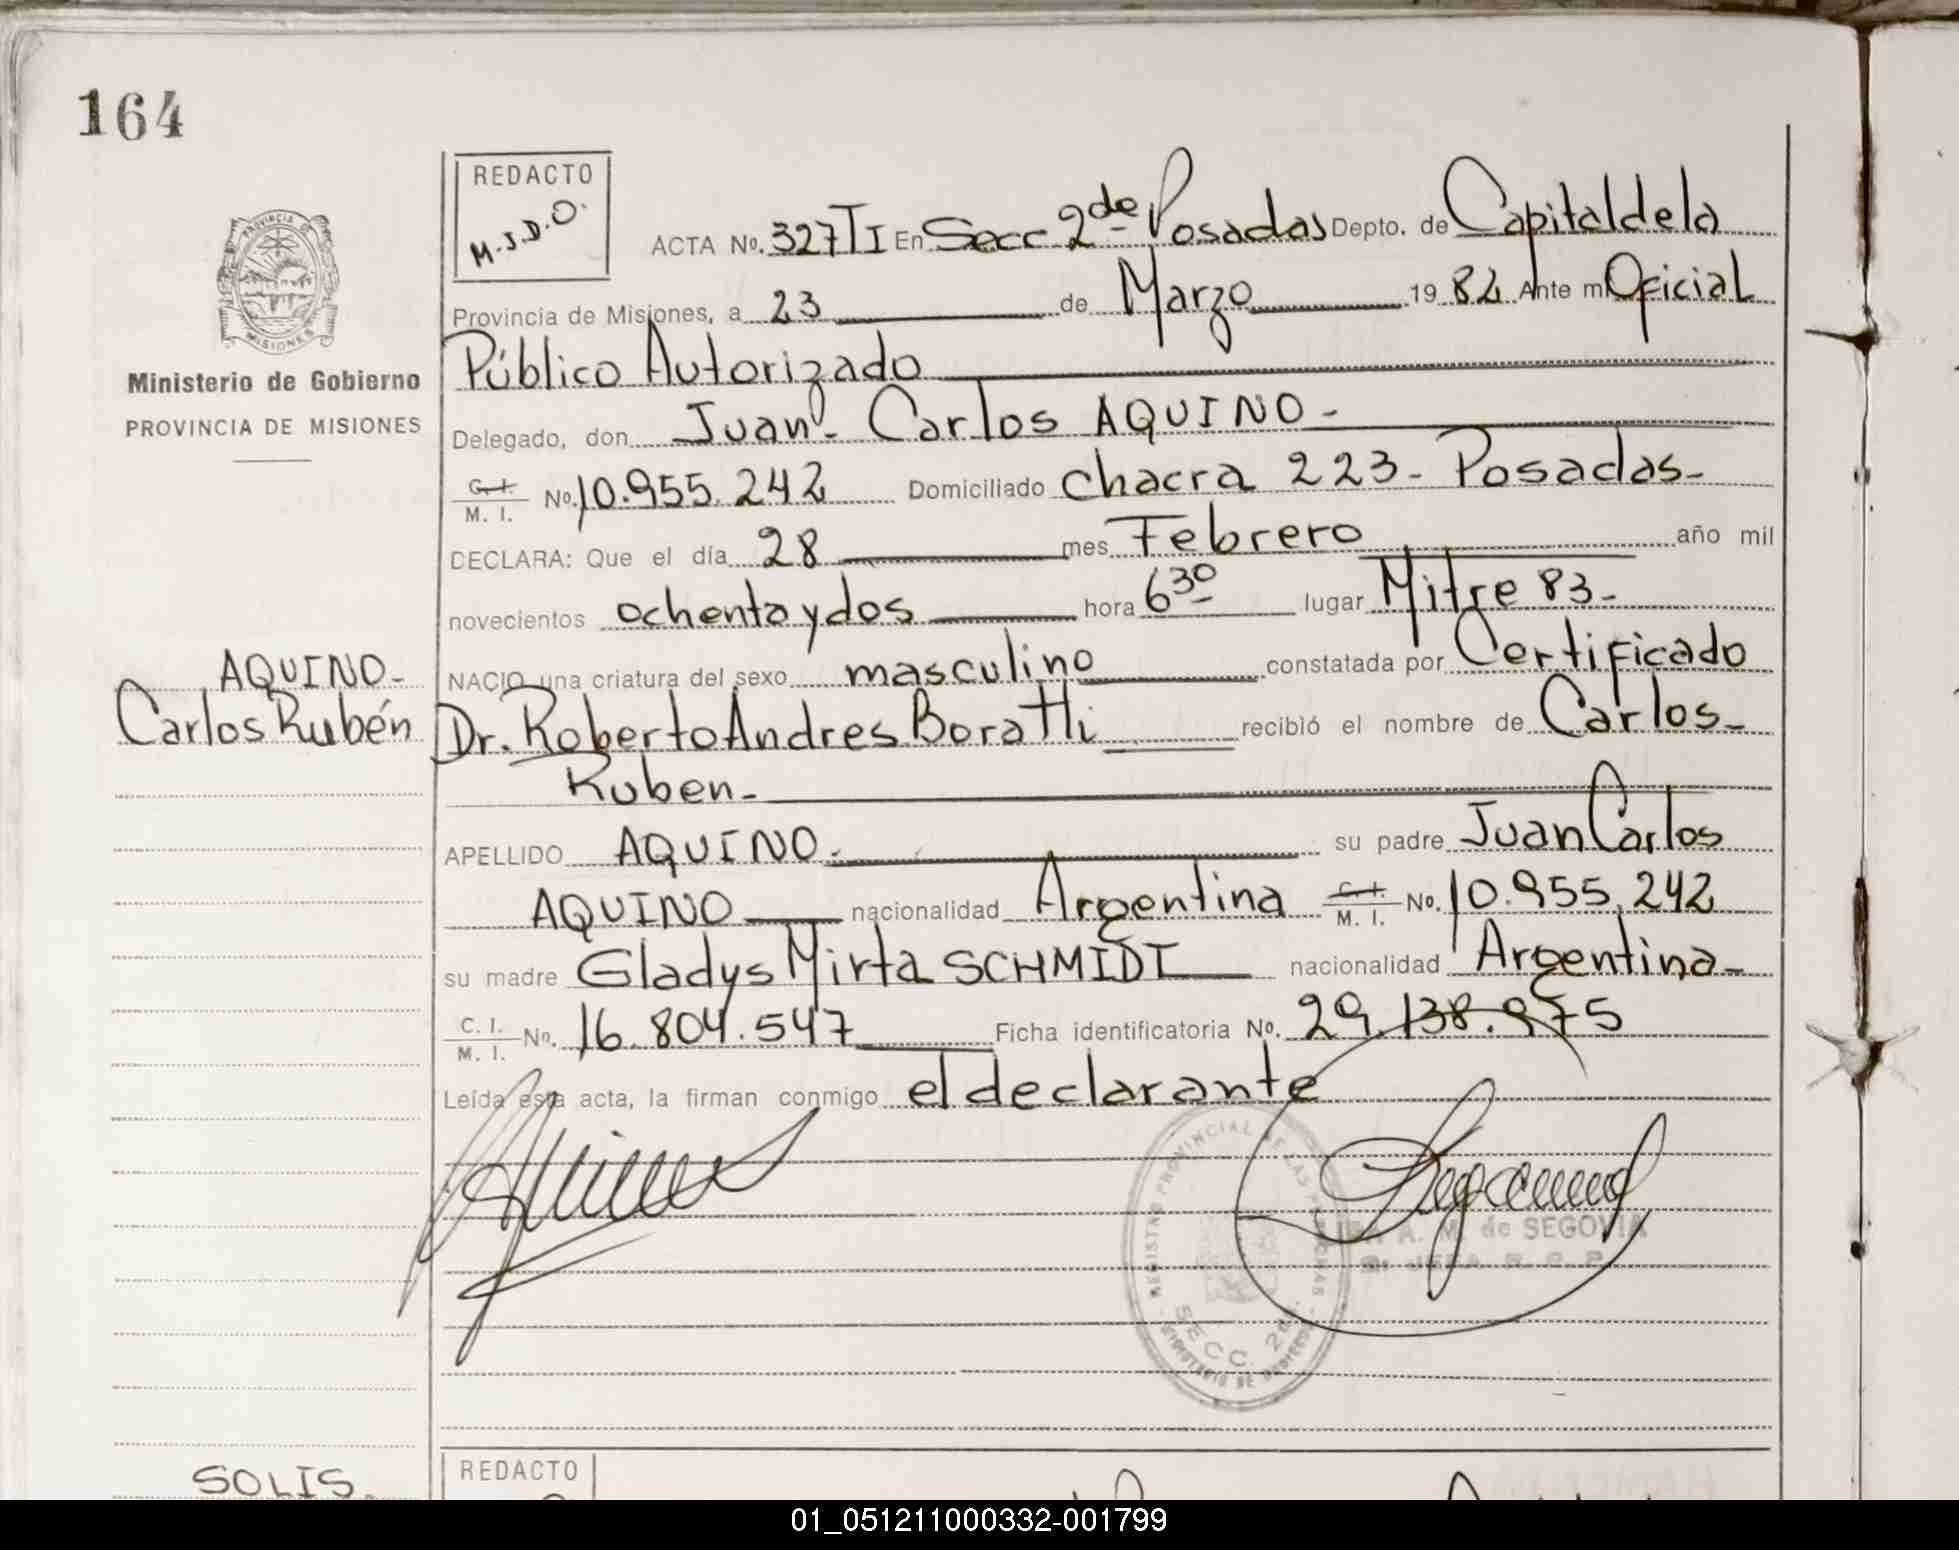 164
REDACTO
M.J.D.O.
PROVINCIA DE MISIONES
Ministerio de Gobierno
PROVINCIA DE MISIONES
ACTA No. 327 TI En Secc 2da de Posadas Depto. de Capital de la
Provincia de Misiones, a 23 de Marzo 1982 Ante mi Oficial
Público Autorizado
Delegado, don Juan Carlos AQUINO-
C. I. M. I. No. 10.955.242 Domiciliado chacra 223- Posadas-
DECLARA: Que el día 28 mes Febrero año mil
novecientos ochenta y dos hora 6 30 lugar Mitre 83-
NACIO una criatura del sexo masculino constatada por Certificado
AQUINO-
Carlos Rubén
Dr. Roberto Andres Boratti recibió el nombre de Carlos-
Ruben-
APELLIDO AQUINO- su padre Juan Carlos
AQUINO nacionalidad Argentina C. I. M. I. No. 10.955.242
su madre Gladys Mirta SCHMIDT nacionalidad Argentina-
C. I. M. I. No. 16.804.547 Ficha identificatoria No. 29.138.975
Leída esta acta, la firman conmigo el declarante
REGISTRO PROVINCIAL DE LAS PERSONAS
SECC. 2da.
MINISTERIO DE GOBIERNO
A. M. de SEGOVIA
JEFA R. P. P.
SOLIS.
REDACTO
01_051211000332-001799